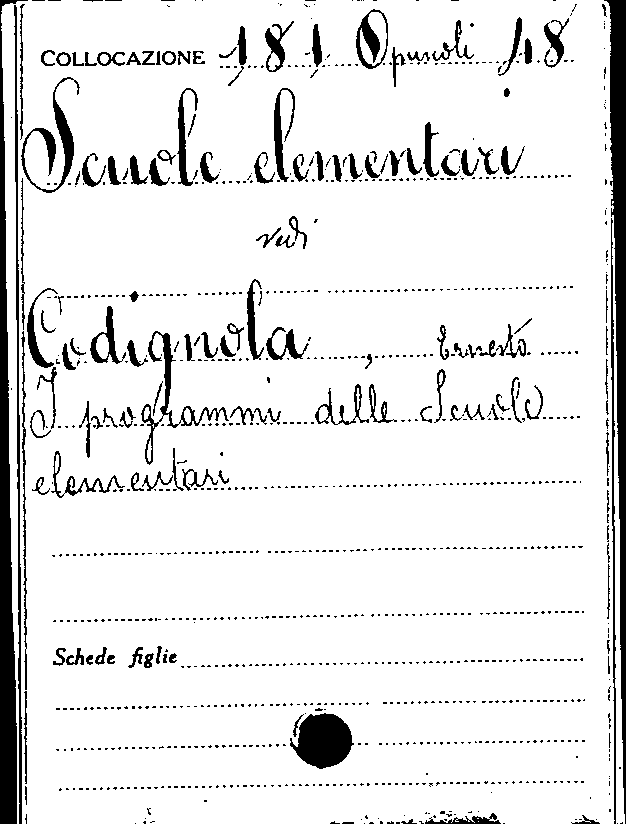 COLLOCAZIONE 181 Opuscoli 48
Scuole elementari
vedi
Codignola, Ernesto
I programmi delle Scuole
elementari
Schede figlie